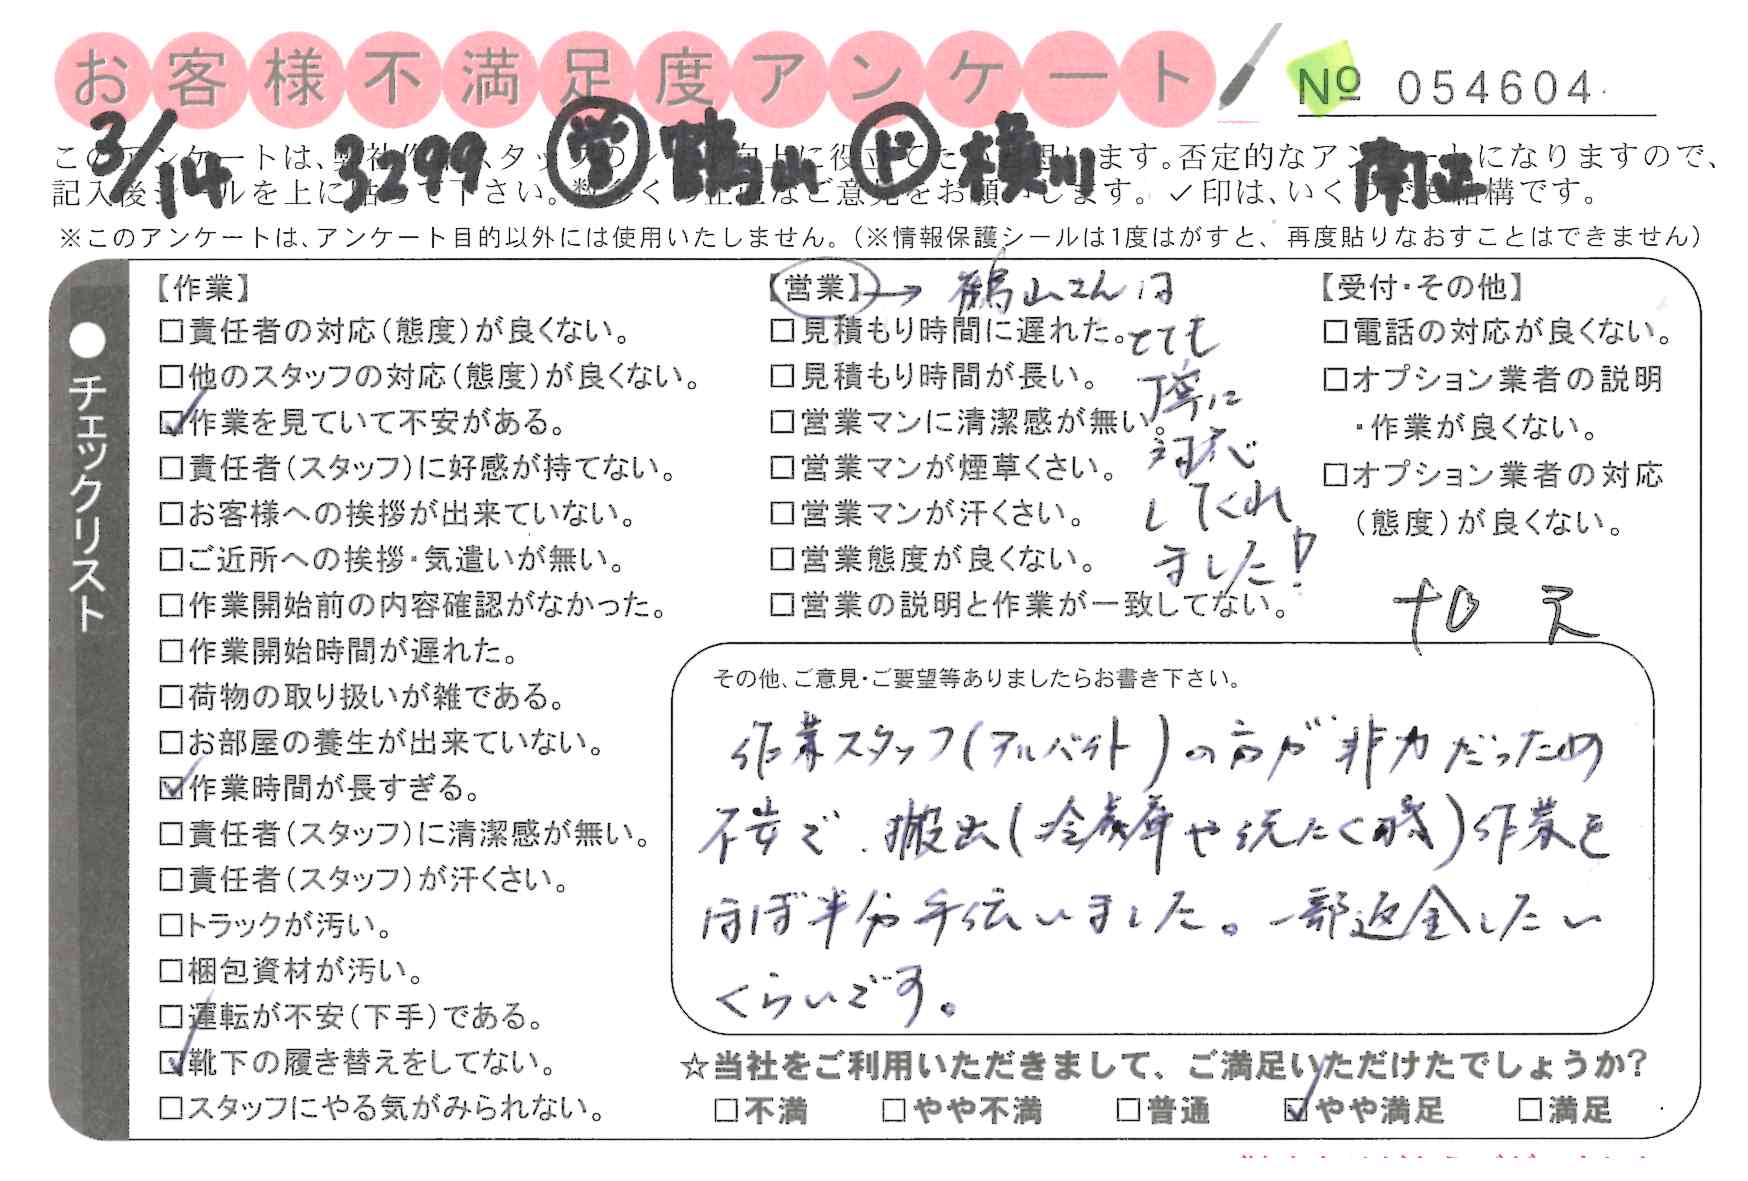 お客様不満足度アンケート
№ 054604
3/14 3299 営 鶴山 ド 横川 南正
このアンケートは、弊社作業スタッフのレベル向上に役立てたいと思います。否定的なアンケートになりますので、
記入後シールを上に貼って下さい。数多くの正直なご意見をお願いします。✓印は、いくつでも結構です。
※このアンケートは、アンケート目的以外には使用いたしません。（※情報保護シールは1度はがすと、再度貼りなおすことはできません）
●チェックリスト
【作業】
□責任者の対応（態度）が良くない。
□他のスタッフの対応（態度）が良くない。
☑作業を見ていて不安がある。
□責任者（スタッフ）に好感が持てない。
□お客様への挨拶が出来ていない。
□ご近所への挨拶・気遣いが無い。
□作業開始前の内容確認がなかった。
□作業開始時間が遅れた。
□荷物の取り扱いが雑である。
□お部屋の養生が出来ていない。
☑作業時間が長すぎる。
□責任者（スタッフ）に清潔感が無い。
□責任者（スタッフ）が汗くさい。
□トラックが汚い。
□梱包資材が汚い。
□運転が不安（下手）である。
☑靴下の履き替えをしてない。
□スタッフにやる気がみられない。
【営業】→ 鶴山さんは
とても
丁寧に
対応
してくれ
ました！
□見積もり時間に遅れた。
□見積もり時間が長い。
□営業マンに清潔感が無い。
□営業マンが煙草くさい。
□営業マンが汗くさい。
□営業態度が良くない。
□営業の説明と作業が一致してない。
【受付・その他】
□電話の対応が良くない。
□オプション業者の説明
・作業が良くない。
□オプション業者の対応
（態度）が良くない。
その他、ご意見・ご要望等ありましたらお書き下さい。
作業スタッフ(アルバイト)の方が非力だっため
不安で、搬出(冷蔵庫や洗たく機)作業を
ほぼ半分手伝いました。一部返金したい
くらいです。
☆当社をご利用いただきまして、ご満足いただけたでしょうか?
□不満 □やや不満 □普通 ☑やや満足 □満足